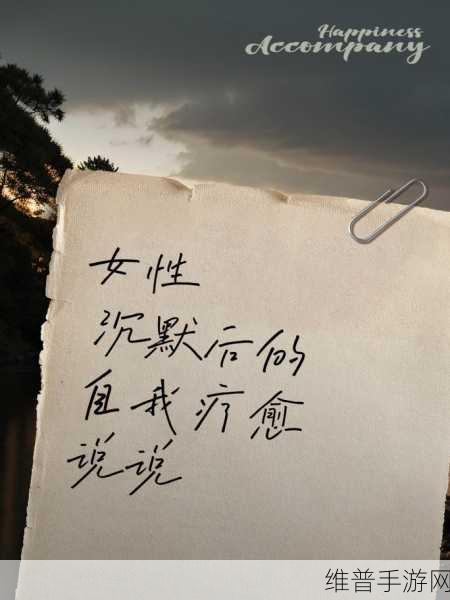 Happiness
Accompany
女性
沉默后的
自我疗愈
说说
维普手游网